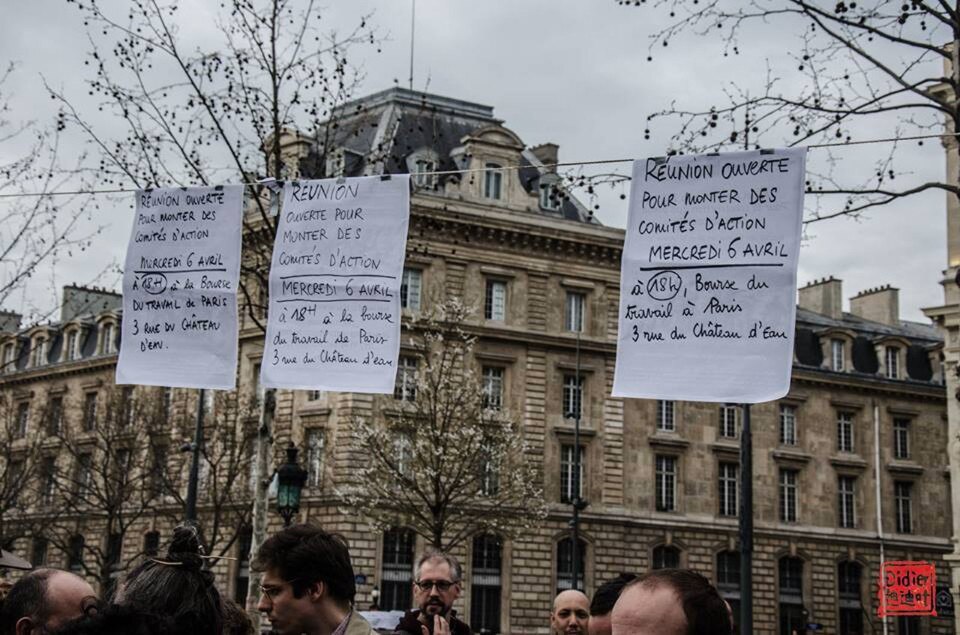 RÉUNION OUVERTE
POUR MONTER DES
COMITÉS D'ACTION
MERCREDI 6 AVRIL
à 18H à la BOURSE
DU TRAVAIL de PARIS
3 RUE DU CHÂTEAU
D'EAU.
RÉUNION
OUVERTE POUR
MONTER DES
COMITÉS D'ACTION
MERCREDI 6 AVRIL
à 18H à la bourse
du travail de Paris
3 rue du Château d'eau
RÉUNION OUVERTE
POUR MONTER DES
COMITÉS D'ACTION
MERCREDI 6 AVRIL
à 18h, Bourse du
travail à Paris
3 rue du Château d'Eau
Didier